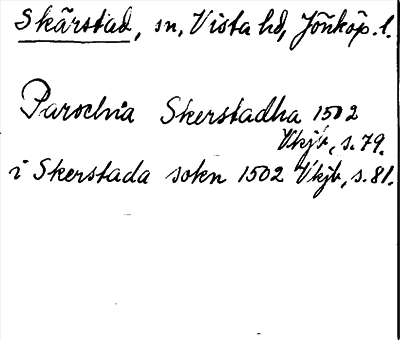 Skärstad, sn, Vista hd, Jönköp. l.
Parochia Skerstadha 1502
Vkjb, s. 79.
i Skerstada sokn 1502 Vkjb, s. 81.